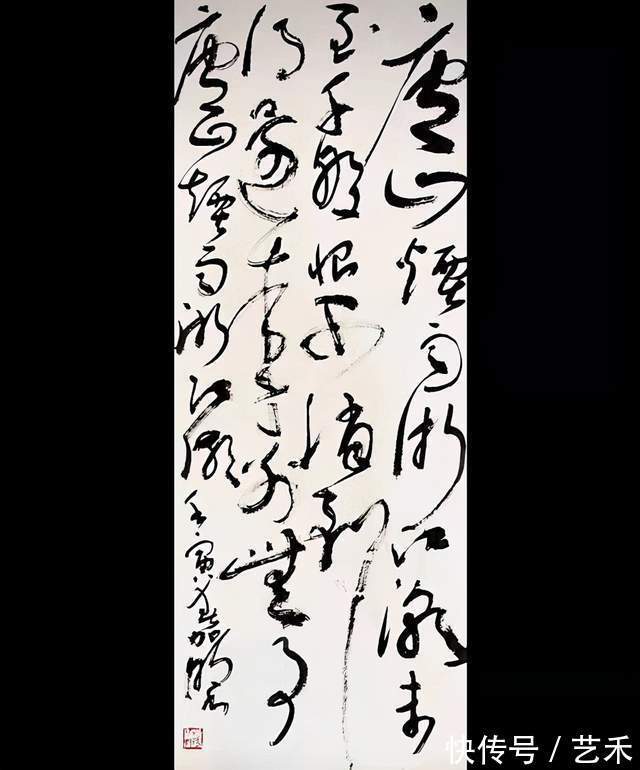 廬山煙雨浙江潮未
至千般恨不消到
得還來别無事
廬山煙雨浙江潮壬寅
快传号 / 艺禾